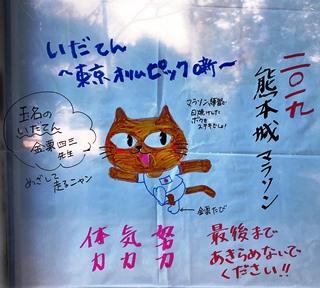 いだてん
〜東京オリムピック噺〜
二〇一九
熊本城マラソン
玉名の
いだてん
金栗四三
先生
めざして
走るニャン
マラソン練習で
日焼けした
ボクも
ステキでしょ!
金栗たび
体力
気力
努力
最後まで
あきらめないで
ください!!